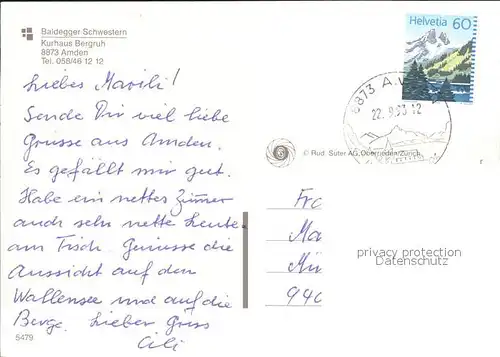 Baldegger Schwestern
Kurhaus Bergruh
8873 Amden
Tel. 058/46 12 12
Helvetia 60
8873 A
22. 9.93 12
Liebes Marili!
Sende Dir viel liebe
Grüsse aus Amden.
Es gefällt mir gut.
Habe ein nettes Zimmer
auch sehr nette Leute
am Tisch. Geniesse die
Aussicht auf den
Wallensee und auf die
Berge. Lieber Gruss
Cili
© Rud. Suter AG, Oberrieden/Zürich
Fr
Ma
Mü
940
privacy protection
Datenschutz
5479